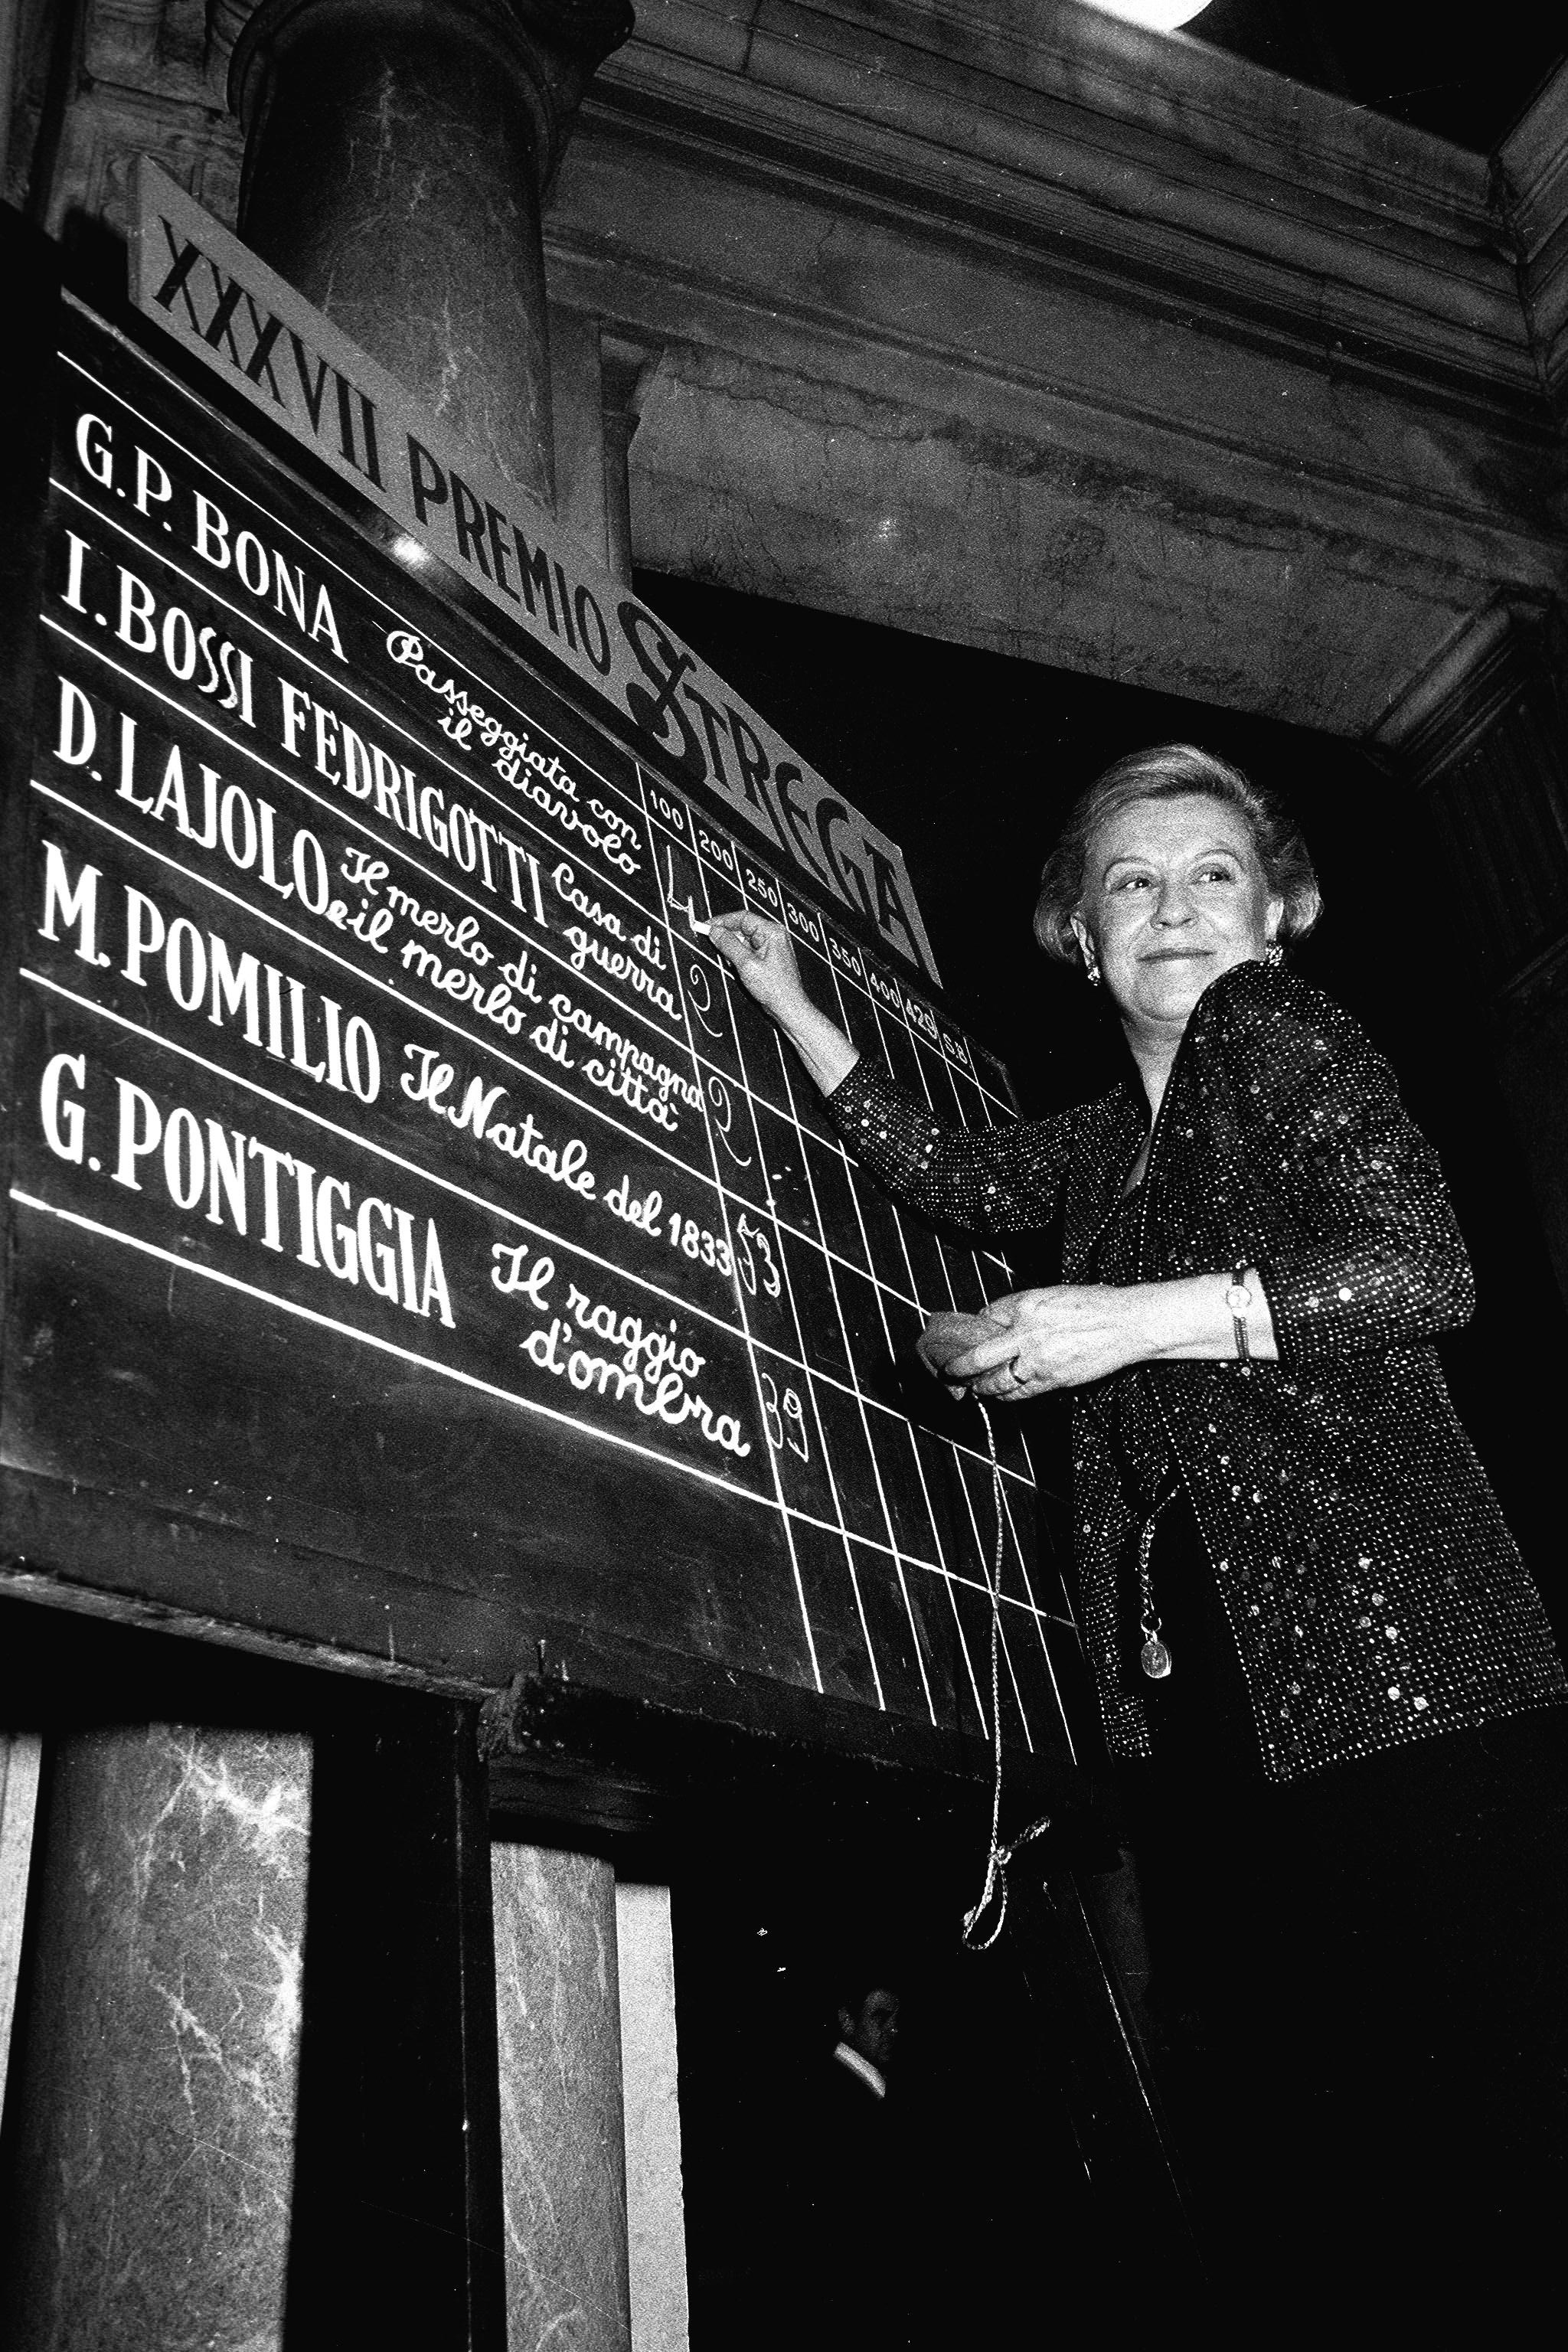 XXXVII PREMIO STREGA
100 200 250 300 350 400 429 S.B
G.P. BONA Passeggiata con
il diavolo
I. BOSSI FEDRIGOTTI Casa di
guerra
D. LAJOLO Il merlo di campagna
e il merlo di città
M. POMILIO Il Natale del 1833 53
G. PONTIGGIA Il raggio
d'ombra 39